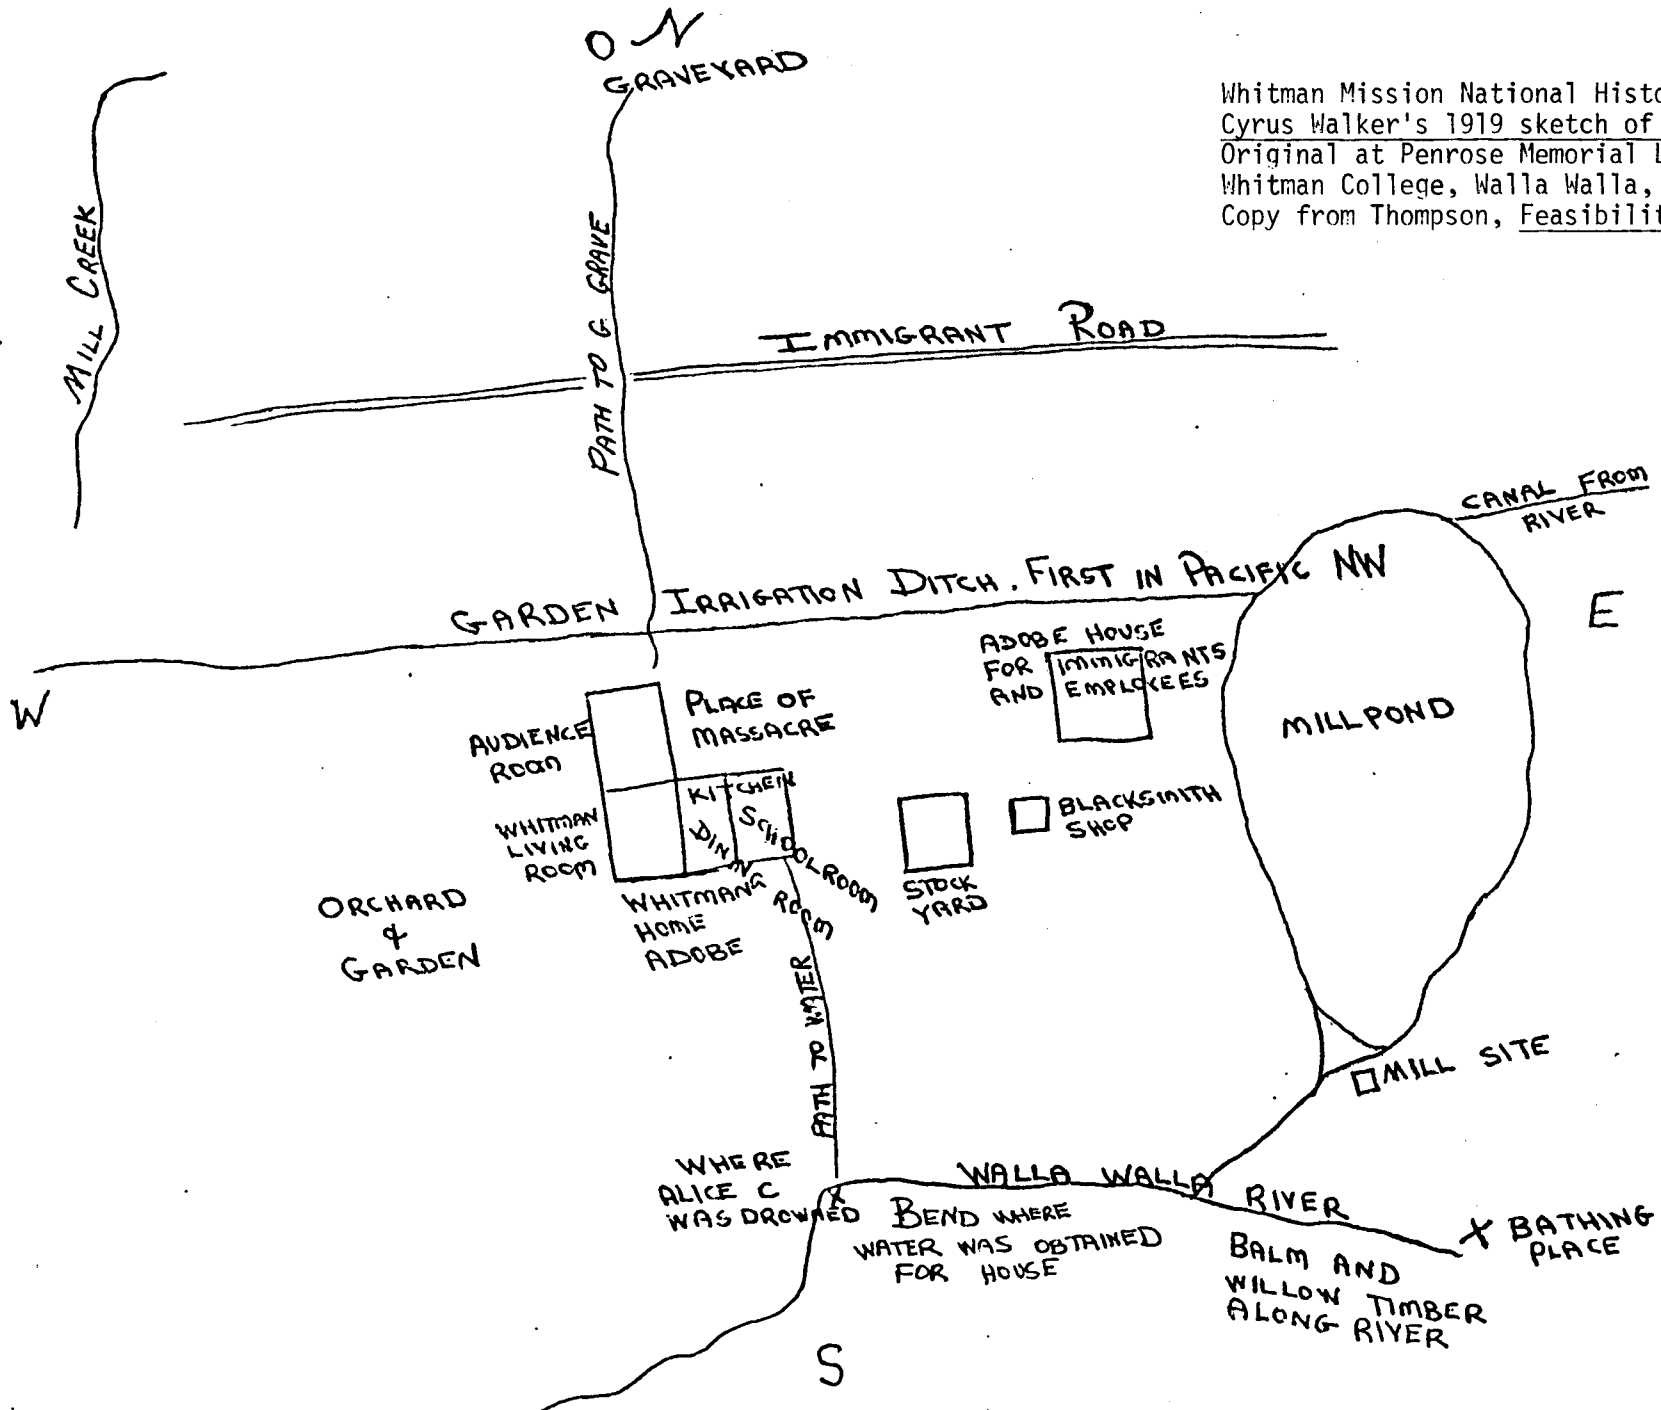 N
GRAVEYARD
Whitman Mission National Histo
Cyrus Walker's 1919 sketch of
Original at Penrose Memorial L
Whitman College, Walla Walla,
Copy from Thompson, Feasibilit
MILL CREEK
PATH TO G GRAVE
IMMIGRANT ROAD
CANAL FROM
RIVER
GARDEN IRRIGATION DITCH. FIRST IN PACIFIC NW
E
W
ADOBE HOUSE
FOR IMMIGRANTS
AND EMPLOYEES
MILLPOND
PLACE OF
MASSACRE
AUDIENCE
ROOM
KITCHEIN
SCHOOLROOM
DINING ROOM
WHITMAN
LIVING
ROOM
BLACKSMITH
SHOP
STOCK
YARD
WHITMANS
HOME
ADOBE
ORCHARD
&
GARDEN
PATH TO WATER
MILL SITE
WHERE
ALICE C
WAS DROWNED
WALLA WALLA RIVER
BEND WHERE
WATER WAS OBTAINED
FOR HOUSE
X BATHING
PLACE
BALM AND
WILLOW TIMBER
ALONG RIVER
S